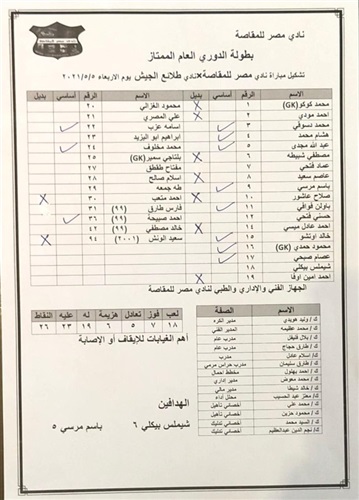 نادي مصر للمقاصة
بطولة الدوري العام الممتاز
تشكيل مباراة نادي مصر للمقاصة×نادي طلائع الجيش يوم الاربعاء ٢٠٢١/٥/٥
الرقم الاسم أساسي بديل الرقم الاسم أساسي بديل
١ محمد كوكو (GK) ٢٠ محمود الغزالي
٢ احمد مودي ٢١ علي المصري
٣ محمد دسوقي ٢٢ اسامه عزب
٤ هشام محمد ٢٣ ابراهيم ابو اليزيد
٥ عبد الله مجدى ٢٤ محمد مخلوف
٦ مصطفي شبيطه ٢٥ بلتاجي سمير (GK)
٧ عماد فتحي ٢٦ مفتاح طقطق
٨ عاصم سعيد ٢٨ اسلام صالح
٩ باسم مرسي ٢٩ طه جمعه
١٠ صلاح عاشور ٣٠ احمد متعب
١١ باولن فوافي ٣١ فارس طارق (٩٩)
١٢ حسني فتحي ٣٦ احمد صبيحة (٩٩)
١٤ احمد عادل ميسي ٤٢ خالد مصطفي (٩٩)
١٥ خالد اوتشو ٩٤ سعيد الونش (٢٠٠١)
١٦ محمود حمدي (GK)
١٧ عصام صبحي
١٨ شيملس بيكلي
١٩ احمد امين اوفا
الجهاز الفني والإداري والطبي لنادي مصر للمقاصة
الاسم الصفة
ك/ وليد هويدي مدير الكره
ك/ محمد عظيمه المدير الفني
ك/ بلال قليفل مدرب عام
ك/ طارق حجاج مدرب عام
ك/ اسلام عادل مدرب
ك/ طارق سليمان مدرب حراس مرمي
ك/ احمد بهلول مخطط احمال
ك/ محمد معوض مدير إداري
ك/ خالد شيطا مدير مالي
ك/ معتز عبد الحسيب محلل أداء
ك/ محمد علي أخصائي تأهيل
ك/ محمود حزين أخصائي تأهيل
ك/ السيد محمد أخصائي تدليك
ك/ نجم الدين عبدالعظيم أخصائي تدليك
لعب فوز تعادل هزيمة له عليه النقاط
١٨ ٧ ٥ ٦ ١٩ ٢٣ ٢٦
أهم الغيابات للإيقاف أو الإصابة
الهدافين
شيملس بيكلي ٦ باسم مرسي ٥